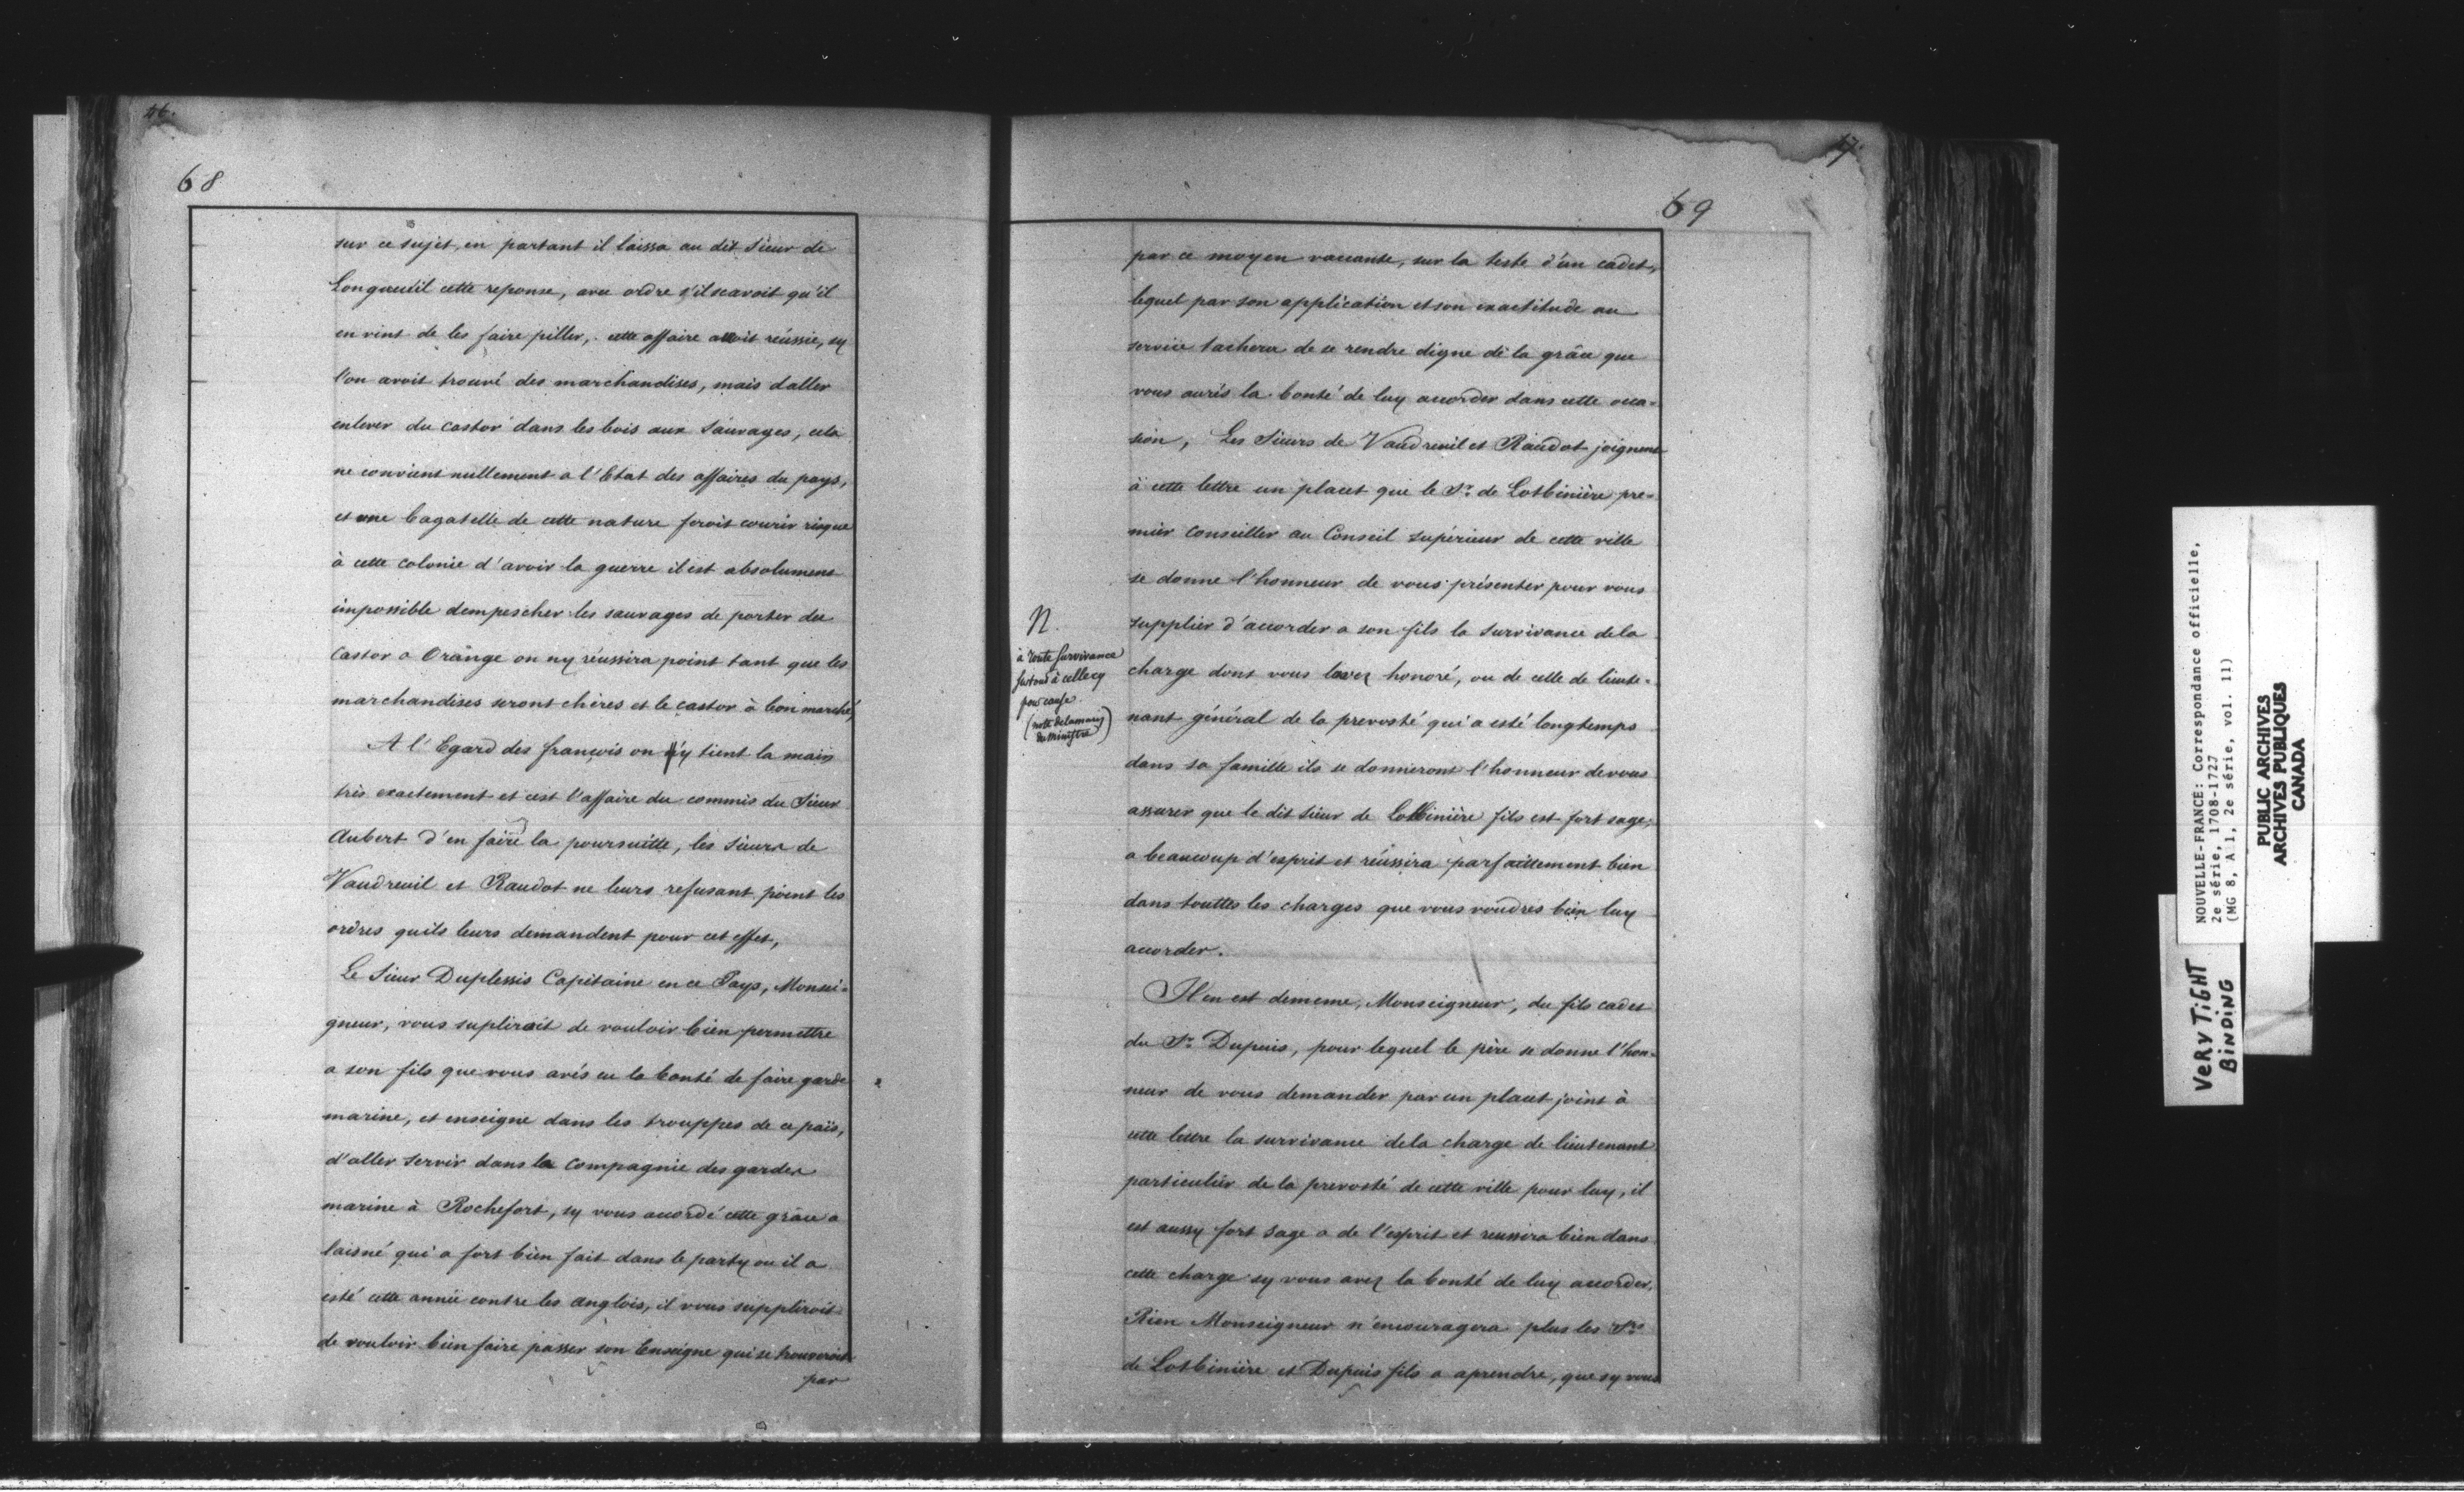 46.
68
sur ce sujet, en partant il laissa au dit Sieur de
Longueuil cette reponse, avec ordre s'il scavoit qu'il
en vint de les faire piller, cette affaire avoit réussie, sy
l'on avoit trouvé des marchandises, mais daller
enlever du castor dans les bois aux Sauvages, cela
ne convient nullement a l'Etat des affaires du pays,
et une bagatelle de cette nature feroit courir risque
à cette colonie d'avoir la guerre il est absolument
impossible dempescher les sauvages de porter du
Castor a Orange on ny réussira point tant que les
marchandises seront chères et le castor à bon marché,
A l'Egard des françois on n'y tient la main
très exactement et cest l'affaire du commis du Sieur
Aubert d'en faire la poursuitte, les Sieurs de
Vaudreuil et Raudot ne leurs refusant point les
ordres quils leurs demandent pour cet effet,
Le Sieur Duplessis Capitaine en ce Pays, Monsei-
gneur, vous supliroit de vouloir bien permettre
a son fils que vous avés eu la bonté de faire garde
marine, et enseigne dans les trouppes de ce païs,
d'aller servir dans la Compagnie des gardes
marine à Rochefort, sy vous accordé cette grâce a
laisné qui a fort bien fait dans le party ou il a
esté cette année contre les anglois, il vous suppliroit
de vouloir bien faire passer son Enseigne qui se trouveroit
par
47.
69
par ce moyen vaccante, sur la teste d'un cadet,
lequel par son application et son exactitude au
service tachera de ce rendre digne de la grâce que
vous aurés la bonté de luy accorder dans cette occa-
sion, Les Sieurs de Vaudreuil et Raudot joignent
à cette lettre un placet que le Sr. de Lotbinière pre-
mier Conseiller au Conseil Supérieur de cette ville
se donne l'honneur de vous présenter pour vous
supplier d'accorder a son fils la Survivance dela
charge dont vous lavez honoré, ou de celle de lieute-
nant général de la prevosté qui a esté longtemps
dans sa famille ils se donneront l'honneur devous
assurer que le dit Sieur de Lotbinière fils est fort sage,
a beaucoup d'esprit et réussira parfaittement bien
dans touttes les charges que vous voudres bien luy
accorder.
N.
à toute Survivance
surtout à celle cy
pour cause.
(note dela main
du Ministre)
Il en est dememe, Monseigneur, du fils cadet
du Sr. Dupuis, pour lequel le père se donne l'hon-
neur de vous demander par un placet joint à
cette lettre la survivance dela charge de lieutenant
particulier de la prevosté de cette ville pour luy, il
est aussy fort sage a de l'esprit et reussira bien dans
cette charge sy vous avez la bonté de luy accorder.
Rien Monseigneur n'encouragera plus les Srs
de Lotbinière et Dupuis fils a aprendre, que sy vous
NOUVELLE-FRANCE: Correspondance officielle,
2e série, 1708-1727
(MG 8, A 1, 2e série, vol. 11)
PUBLIC ARCHIVES
ARCHIVES PUBLIQUES
CANADA
VERY TIGHT
BINDING